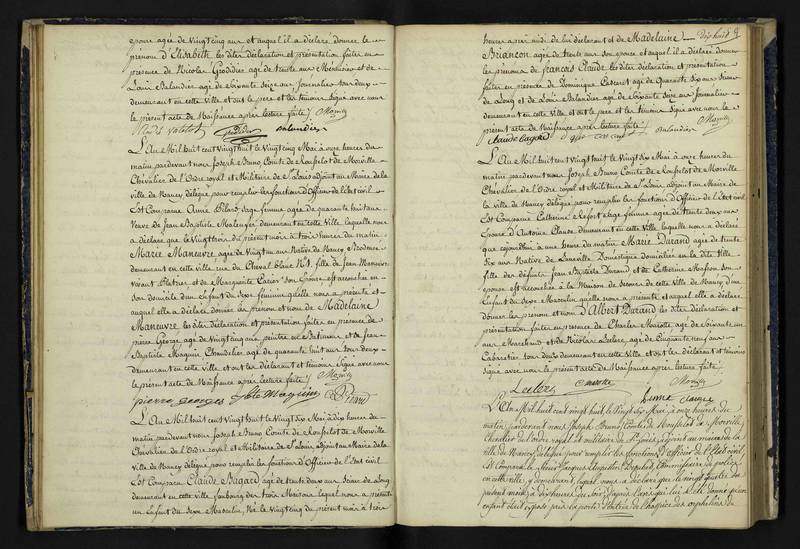 épouse agée de Vingt cinq ans et auquel il a déclaré donner le
prénom d'Elisabeth les dites déclaration et présentation faites en
presence de Nicolas Grodidier agé de trente ans Menuisier et de
Louis Balandier agé de soixante seize ans Journalier tous deux
demeurant en cette Ville et ont le pere et les témoins signé avec nous
le présent acte de Naissance après lecture faite /.
balandier
L'An Mil huit cent Vingt huit le Vingt cinq Mai à onze heures du
matin, pardevant nous Joseph Bruno Comte de Rousselot de Morville
Chevalier de l'Ordre royal et Militaire de St Louis adjoint au Maire de la
ville de Nancy délégué pour remplir les fonctions d'Officier de l'Etat civil
Est Comparue Anne Pilard sage femme agée de quarante huit ans
Veuve de Jean Baptiste demeurant en cette Ville laquelle nous
a déclaré que le Vingt trois du présent mois à trois heures du matin
Marie Maneuvre agée de Vingt un ans Native de Nancy Brodeuse
demeurant en cette ville rue du Cheval blanc No fille de Jean Maneuvre
vivant Platrier et de Marguerite son Epouse est accouchée en
son domicile d'un Enfant du sexe féminin qu'elle nous a présenté et
auquel elle a déclaré donner les prénom et nom de Madelaine
Maneuvre les dites déclaration et présentation faites en presence de
pierre George agé de Vingt cinq ans, peintre en Batiment et de Jean
Baptiste Maguin Chandelier agé de quarante huit ans tous deux
demeurant en cette Ville et ont les déclarant et témoins signé avec nous
le présent acte de Naissance après lecture faite /.
pierre georges Jbte Maguin
L'An Mil huit cent Vingt huit le Vingt six Mai à dix heures du
matin pardevant nous Joseph Bruno Comte de Rousselot de Morville
Chevalier de l'Ordre royal et Militaire de St Louis adjoint au Maire de la
ville de Nancy délégué pour remplir les fonctions d'Officier de l'Etat civil
Est Comparu Claude Bagard agé de trente deux ans Scieur de Long
demeurant en cette Ville faubourg des trois Maisons lequel nous a présenté
un Enfant du sexe Masculin, Né le Vingt cinq du présent mois à trois
dix huit
heures après midi de lui déclarant et de Madelaine
Briançon agée de trente ans son epouse et auquel il a déclaré donner
les prenoms de françois Claude les dites déclaration et présentation
faites en presence de Dominique agé de Quarante six ans Scieur
de Long et de Louis Balandier agé de soixante seize ans Journalier
demeurant en cette Ville et ont le pere et les témoins signé avec nous le
présent acte de Naissance après lecture faite /.
claude bagard balandier
L'An Mil huit cent Vingt huit le Vingt six Mai à onze heures du
matin pardevant nous Joseph Bruno Comte de Rousselot de Morville
Chevalier de l'Ordre royal et Militaire de St Louis adjoint au Maire de
la ville de Nancy délégué pour remplir les fonctions d'Officier de l'Etat civil
Est Comparue Catherine sage femme agée de trente deux ans
Epouse d'Antoine Clause demeurant en cette Ville laquelle nous a déclaré
que cejourd'hui à une heure du matin Marie Durand agée de trente
six ans Native de Lunéville Domestique domiciliée en la dite Ville
fille des défunts Jean Baptiste Durand et de Catherine son
epouse est accouchée à la Maison de Secours de cette Ville de Nancy d'un
Enfant du sexe Masculin qu'elle nous a présenté et auquel elle a déclaré
donner les prenom et nom d'Albert Durand les dites déclaration et
présentation faites en presence de Charles Marotte agé de soixante un
ans Marchand et de Nicolas Leclerc agé de Cinquante neuf ans
Cabaretier tous deux demeurant en cette Ville et ont les déclarant et témoins
signé avec nous le présent acte de Naissance après lecture faite /.
Leclerc C marotte
L'An mil huit cent vingt huit le Vingt six Mai, à onze heures du
matin pardevant nous Joseph Bruno Comte de Rousselot de Morville,
Chevalier de l'ordre royal et militaire de St Louis, adjoint au maire de la
ville de Nancy délégué pour remplir les fonctions d'officier de l'Etat civil,
Est Comparu le sieur Jacques Augustin Commissaire de police
en cette ville, y demeurant, lequel nous a déclaré que le vingt quatre du
présent mois, à dix heures du soir
enfant était exposé près la porte d'entrée de l'hospice des orphelins de